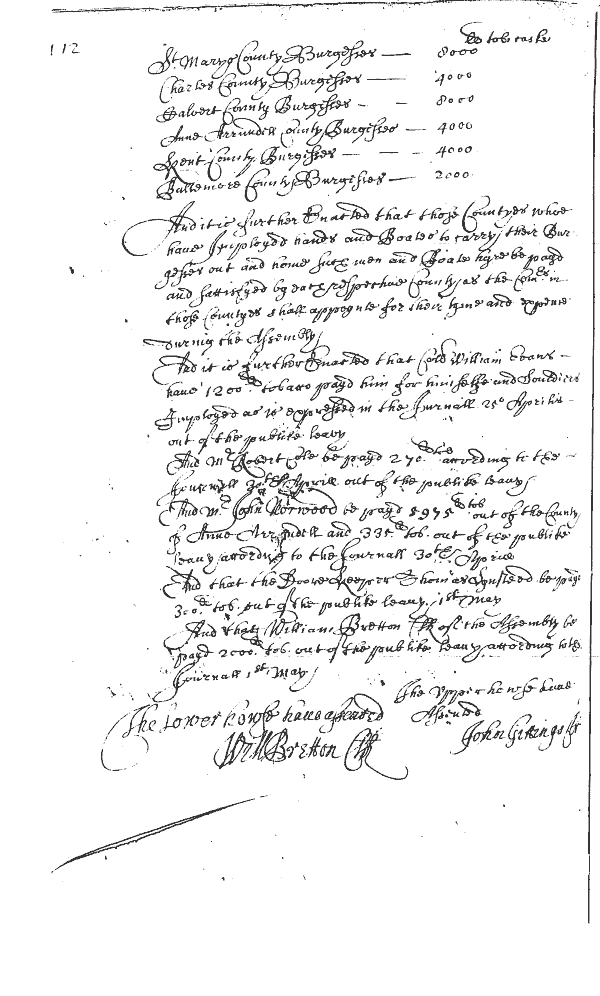 112
lb tob caske
St Maryes County Burgesses — 8000
Charles County Burgesses — 4000
Calvert County Burgesses — — 8000
Anne Arrundell County Burgesses — 4000
Kent County Burgesses — — — 4000
Baltemore County Burgesses — 2000
And it is further Enacted that those Countyes whoe
have Imployed hands and Boates to carry their Bur
gesses out and home such men and Boate hyre be payd
and sattisfyed by each respective County as the Com:rs in
those Countyes shall appoynte for their tyme and expence
during the Assembly
And it is further Enacted that Coll William Evans
have 1200 lb tobacco payd him for himselfe and Souldiers
Imployed as is expressed in the Jurnall 25o Aprilis
out of the publike leavy
And Mr Robert Cole be payd 270 lb tob according to the
Journall 30th Aprill out of the publike leavy
And Mr John Norwood be payd 5975 lb tob out of the County
of Anne Arrundell and 335 lb tob. out of the publike
leavy according to the Journall 30th Aprill
And that the Doore Keeper Thomas be payd
300 lb tob. out of the publike leavy. 1st May
And that William Bretton Clk of the Assembly be
payd 2000 lb tob. out of the publike leavy according to the
Journall 1st May
The Lower howse have assented
Will Bretton Clk
The Upper howse have
Assented
John Gittings Clr